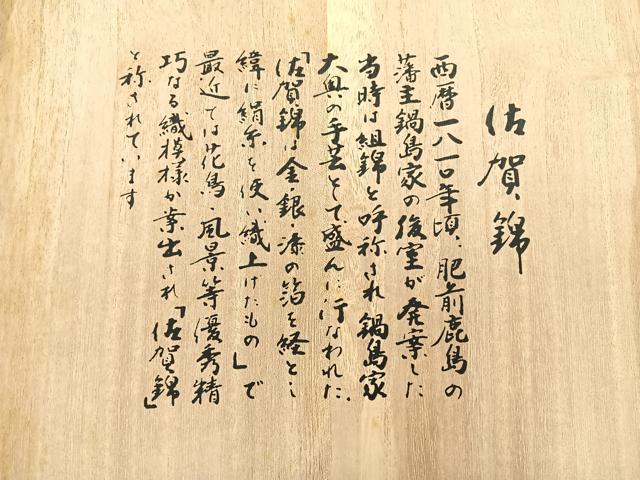 佐賀錦
西暦一八一〇年頃、肥前鹿島の
藩主鍋島家の後室が発案した
当時は組錦と呼称され鍋島家
大奥の手芸として盛んに行なわれた、
「佐賀錦は金・銀・漆の箔を経とし
緯に絹糸を使い織上げたもの」で
最近では花鳥・風景等優秀精
巧なる織模様が案出され「佐賀錦」
と称されています